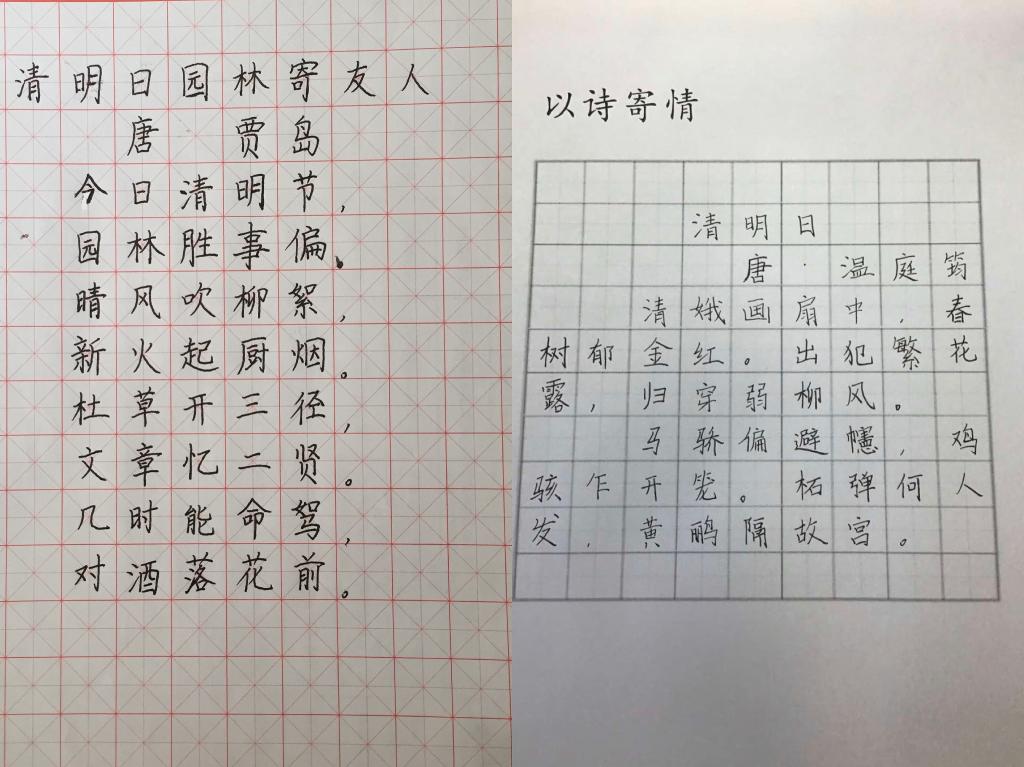 清明日园林寄友人
唐 贾岛
今日清明节,
园林胜事偏。
晴风吹柳絮,
新火起厨烟。
杜草开三径,
文章忆二贤。
几时能命驾,
对酒落花前。
以诗寄情
清明日
唐·温庭筠
清娥画扇中,春
树郁金红。出犯繁花
露,归穿弱柳风。
马骄偏避幰,鸡
骇乍开笼。柘弹何人
发,黄鹂隔故宫。